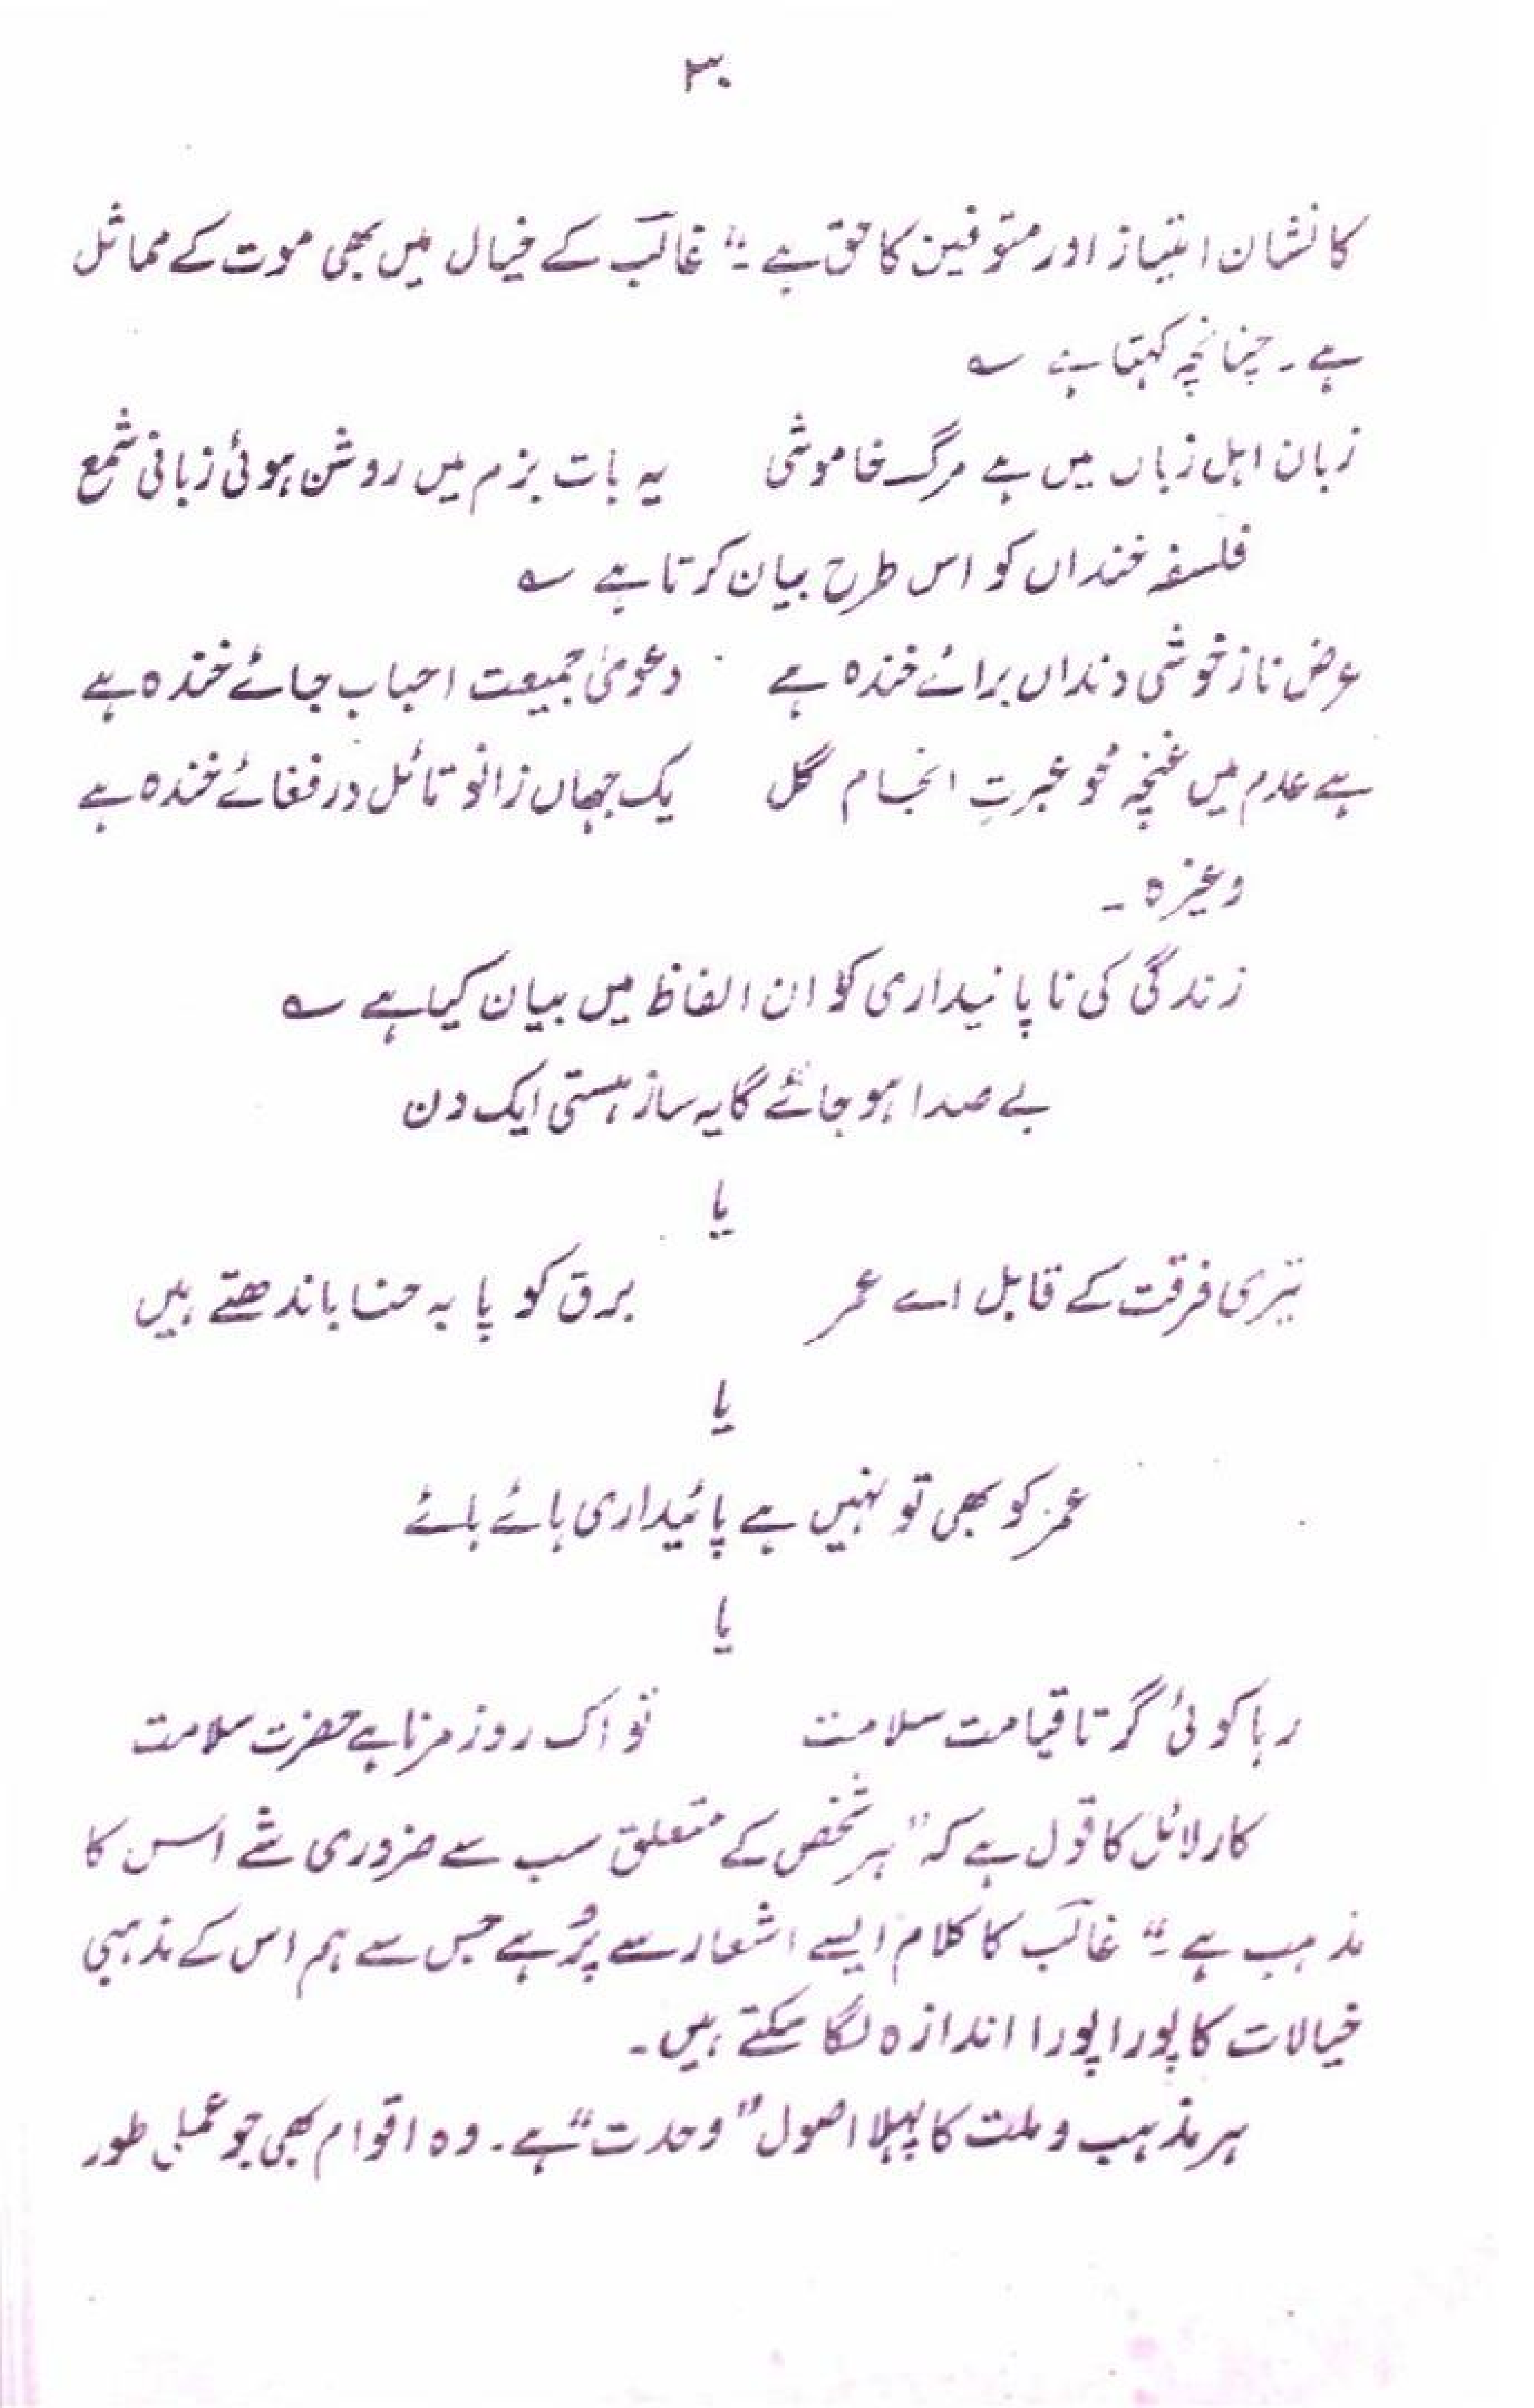 ۳۰
کا نشان امتیاز اور متوفین کا حق ہے ۔" غالب کے خیال میں بھی موت کے مماثل
ہے ۔ چنانچہ کہتا ہے ؎
زبان اہل زباں میں ہے مرگ خاموشی یہ بات بزم میں روشن ہوئی زبانی شمع
فلسفہ خنداں کو اس طرح بیان کرتا ہے ؎
عرض ناز خوشی دنداں برائے خندہ ہے دعویٰ جمیعت احباب جائے خندہ ہے
ہے عدم میں غنچہ محو عبرتِ انجام گل یک جہاں زانو تائل در قفائے خندہ ہے
وغیرہ ۔
زندگی کی نا پائیداری کو ان الفاظ میں بیان کیا ہے ؎
بے صدا ہو جائے گا یہ ساز ہستی ایک دن
یا
تیری فرقت کے قابل اے عمر برق کو پا بہ حنا باندھتے ہیں
یا
عمر کو بھی تو نہیں ہے پائیداری ہائے ہائے
یا
رہا کوئی گر تا قیامت سلامت تو اک روز مرنا ہے حضرت سلامت
کارلائل کا قول ہے کہ "ہر شخص کے متعلق سب سے ضروری شے اس کا
مذہب ہے ۔" غالب کا کلام ایسے اشعار سے پُر ہے جس سے ہم اس کے مذہبی
خیالات کا پورا پورا اندازہ لگا سکتے ہیں ۔
ہر مذہب و ملت کا پہلا اصول "وحدت" ہے ۔ وہ اقوام بھی جو عملی طور